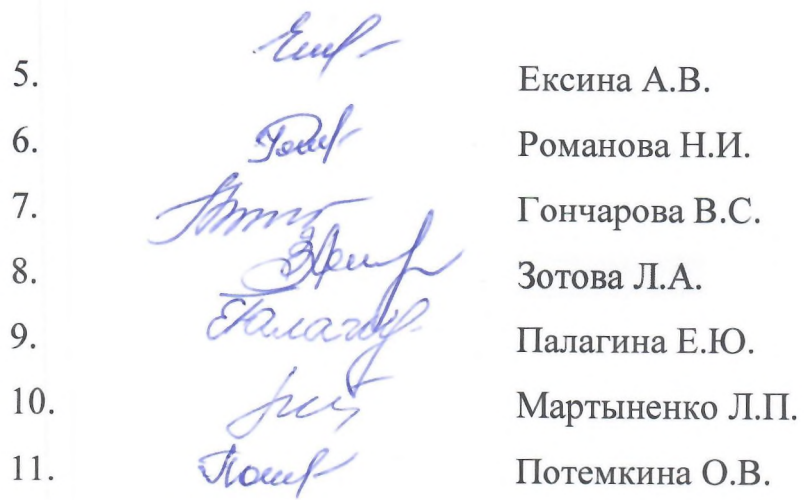 5. Ексина А.В.
6. Романова Н.И.
7. Гончарова В.С.
8. Зотова Л.А.
9. Палагина Е.Ю.
10. Мартыненко Л.П.
11. Потемкина О.В.